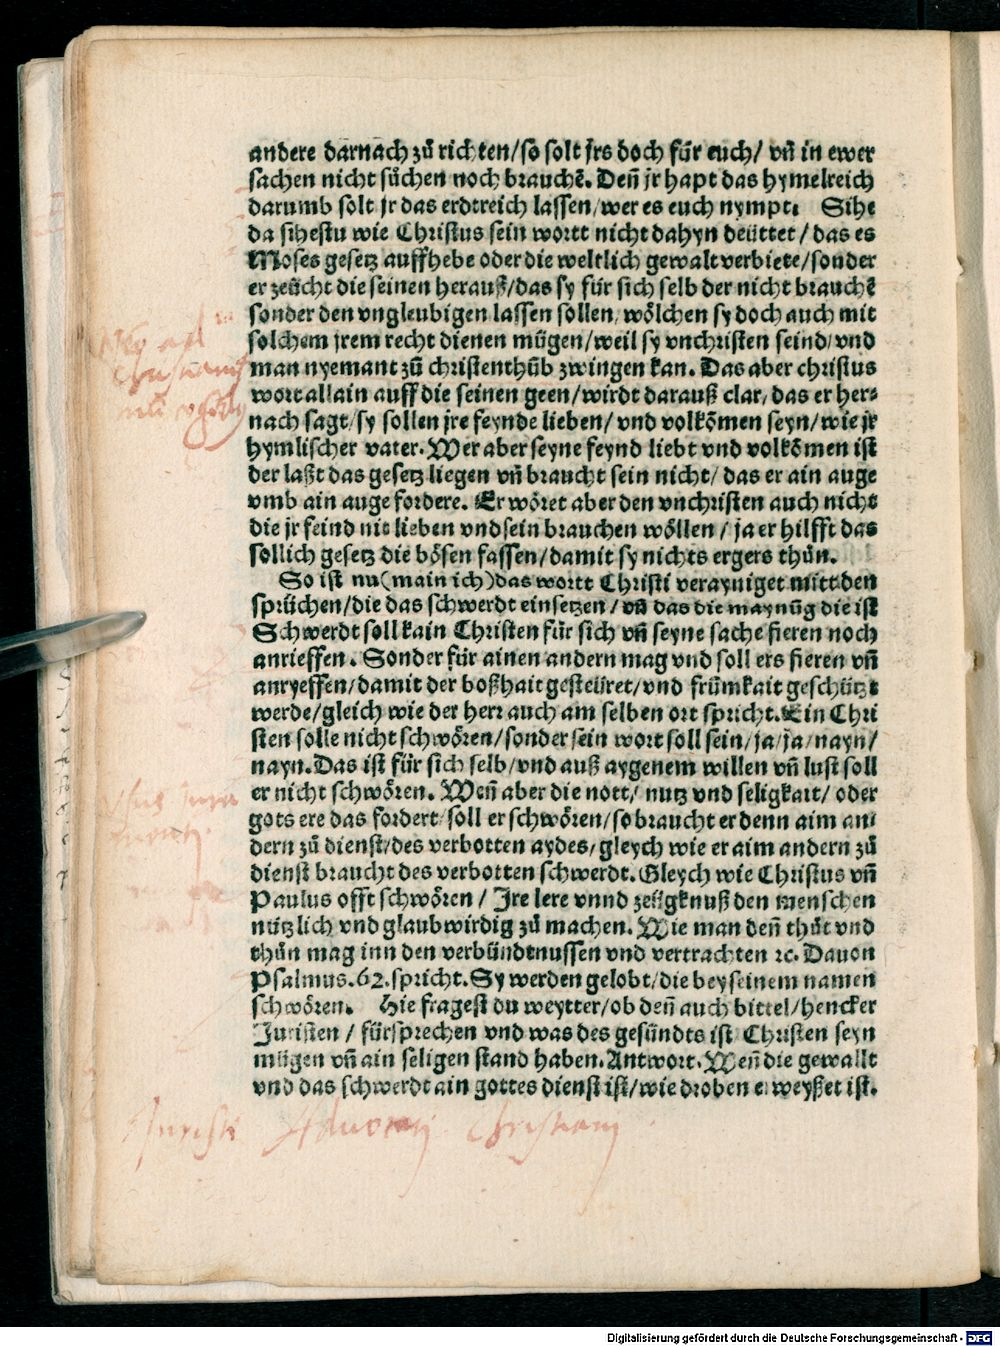 andere darnach zů richten/so solt jrs doch für euch/ vñ in ewer
sachen nicht sůchen noch brauchē. Deñ jr hapt das hymelreich
darumb solt jr das erdtreich lassen/wer es euch nympt. Sihe
da sihestu wie Christus sein wortt nicht dahyn deüttet/das es
Moses gesetz auffhebe oder die weltlich gewalt verbiete/sonder
er zeücht die seinen herauß/das sy für sich selb der nicht brauchē
sonder den vngleubigen lassen sollen/wölchen sy doch auch mit
solchem jrem recht dienen mügen/weil sy vnchristen seind/vnd
man nyemant zů christenthůb zwingen kan. Das aber christus
wort allain auff die seinen geen/wirdt darauß clar/das er her⸗
nach sagt/sy sollen jre feynde lieben/vnd volkõmen seyn/wie jr
hymlischer vater. Wer aber seyne feynd liebt vnd volkõmen ist
der laßt das gesetz liegen vñ braucht sein nicht/das er ain auge
vmb ain auge fordere. Er wöret aber den vnchristen auch nicht
die jr feind nit lieben vnd sein brauchen wöllen/ja er hilfft das
sollich gesetz die bösen fassen/damit sy nichts ergers thůn.
So ist nu(main ich)das wortt Christi verayniget mitt den
sprüchen/die das schwerdt einsetzen/vñ das die maynũg die ist
Schwerdt soll kain Christen für sich vñ seyne sache fieren noch
anrieffen. Sonder für ainen andern mag vnd soll ers fieren vñ
anryeffen/damit der boßhait gesteüret/vnd frümkait geschützt
werde/gleich wie der herr auch am selben ort spricht. Ein Chri
sten solle nicht schwören/sonder sein wort soll sein/ja/ja/nayn/
nayn. Das ist für sich selb/vnd auß aygenem willen vñ lust soll
er nicht schwören. Weñ aber die nott/ nutz vnd seligkart/ oder
gots ere das fordert/soll er schwören/so braucht er denn aim an⸗
dern zů dienst/des verbotten aydes/gleych wie er aim andern zů
dienst braucht des verbotten schwerdt. Gleych wie Christus vñ
Paulus offt schwören/ Jre lere vnnd zeügknuß den menschen
nützlich vnd glaubwirdig zů machen. Wie man deñ thůt vnd
thůn mag inn den verbündtnussen vnd vertrachten ꝛc. Dauon
Psalmus.62.spricht. Sy werden gelobt/die bey seinem namen
schwören. Hie fragest du weytter/ob deñ auch bittel/hencker
Juristen/ fürsprechen vnd was des gesündts ist Christen seyn
mügen vñ ain seligen stand haben. Antwort. Weñ die gewallt
vnd das schwerdt ain gottes dienst ist/wie droben erweyßet ist.
Digitalisierung gefördert durch die Deutsche Forschungsgemeinschaft - DFG